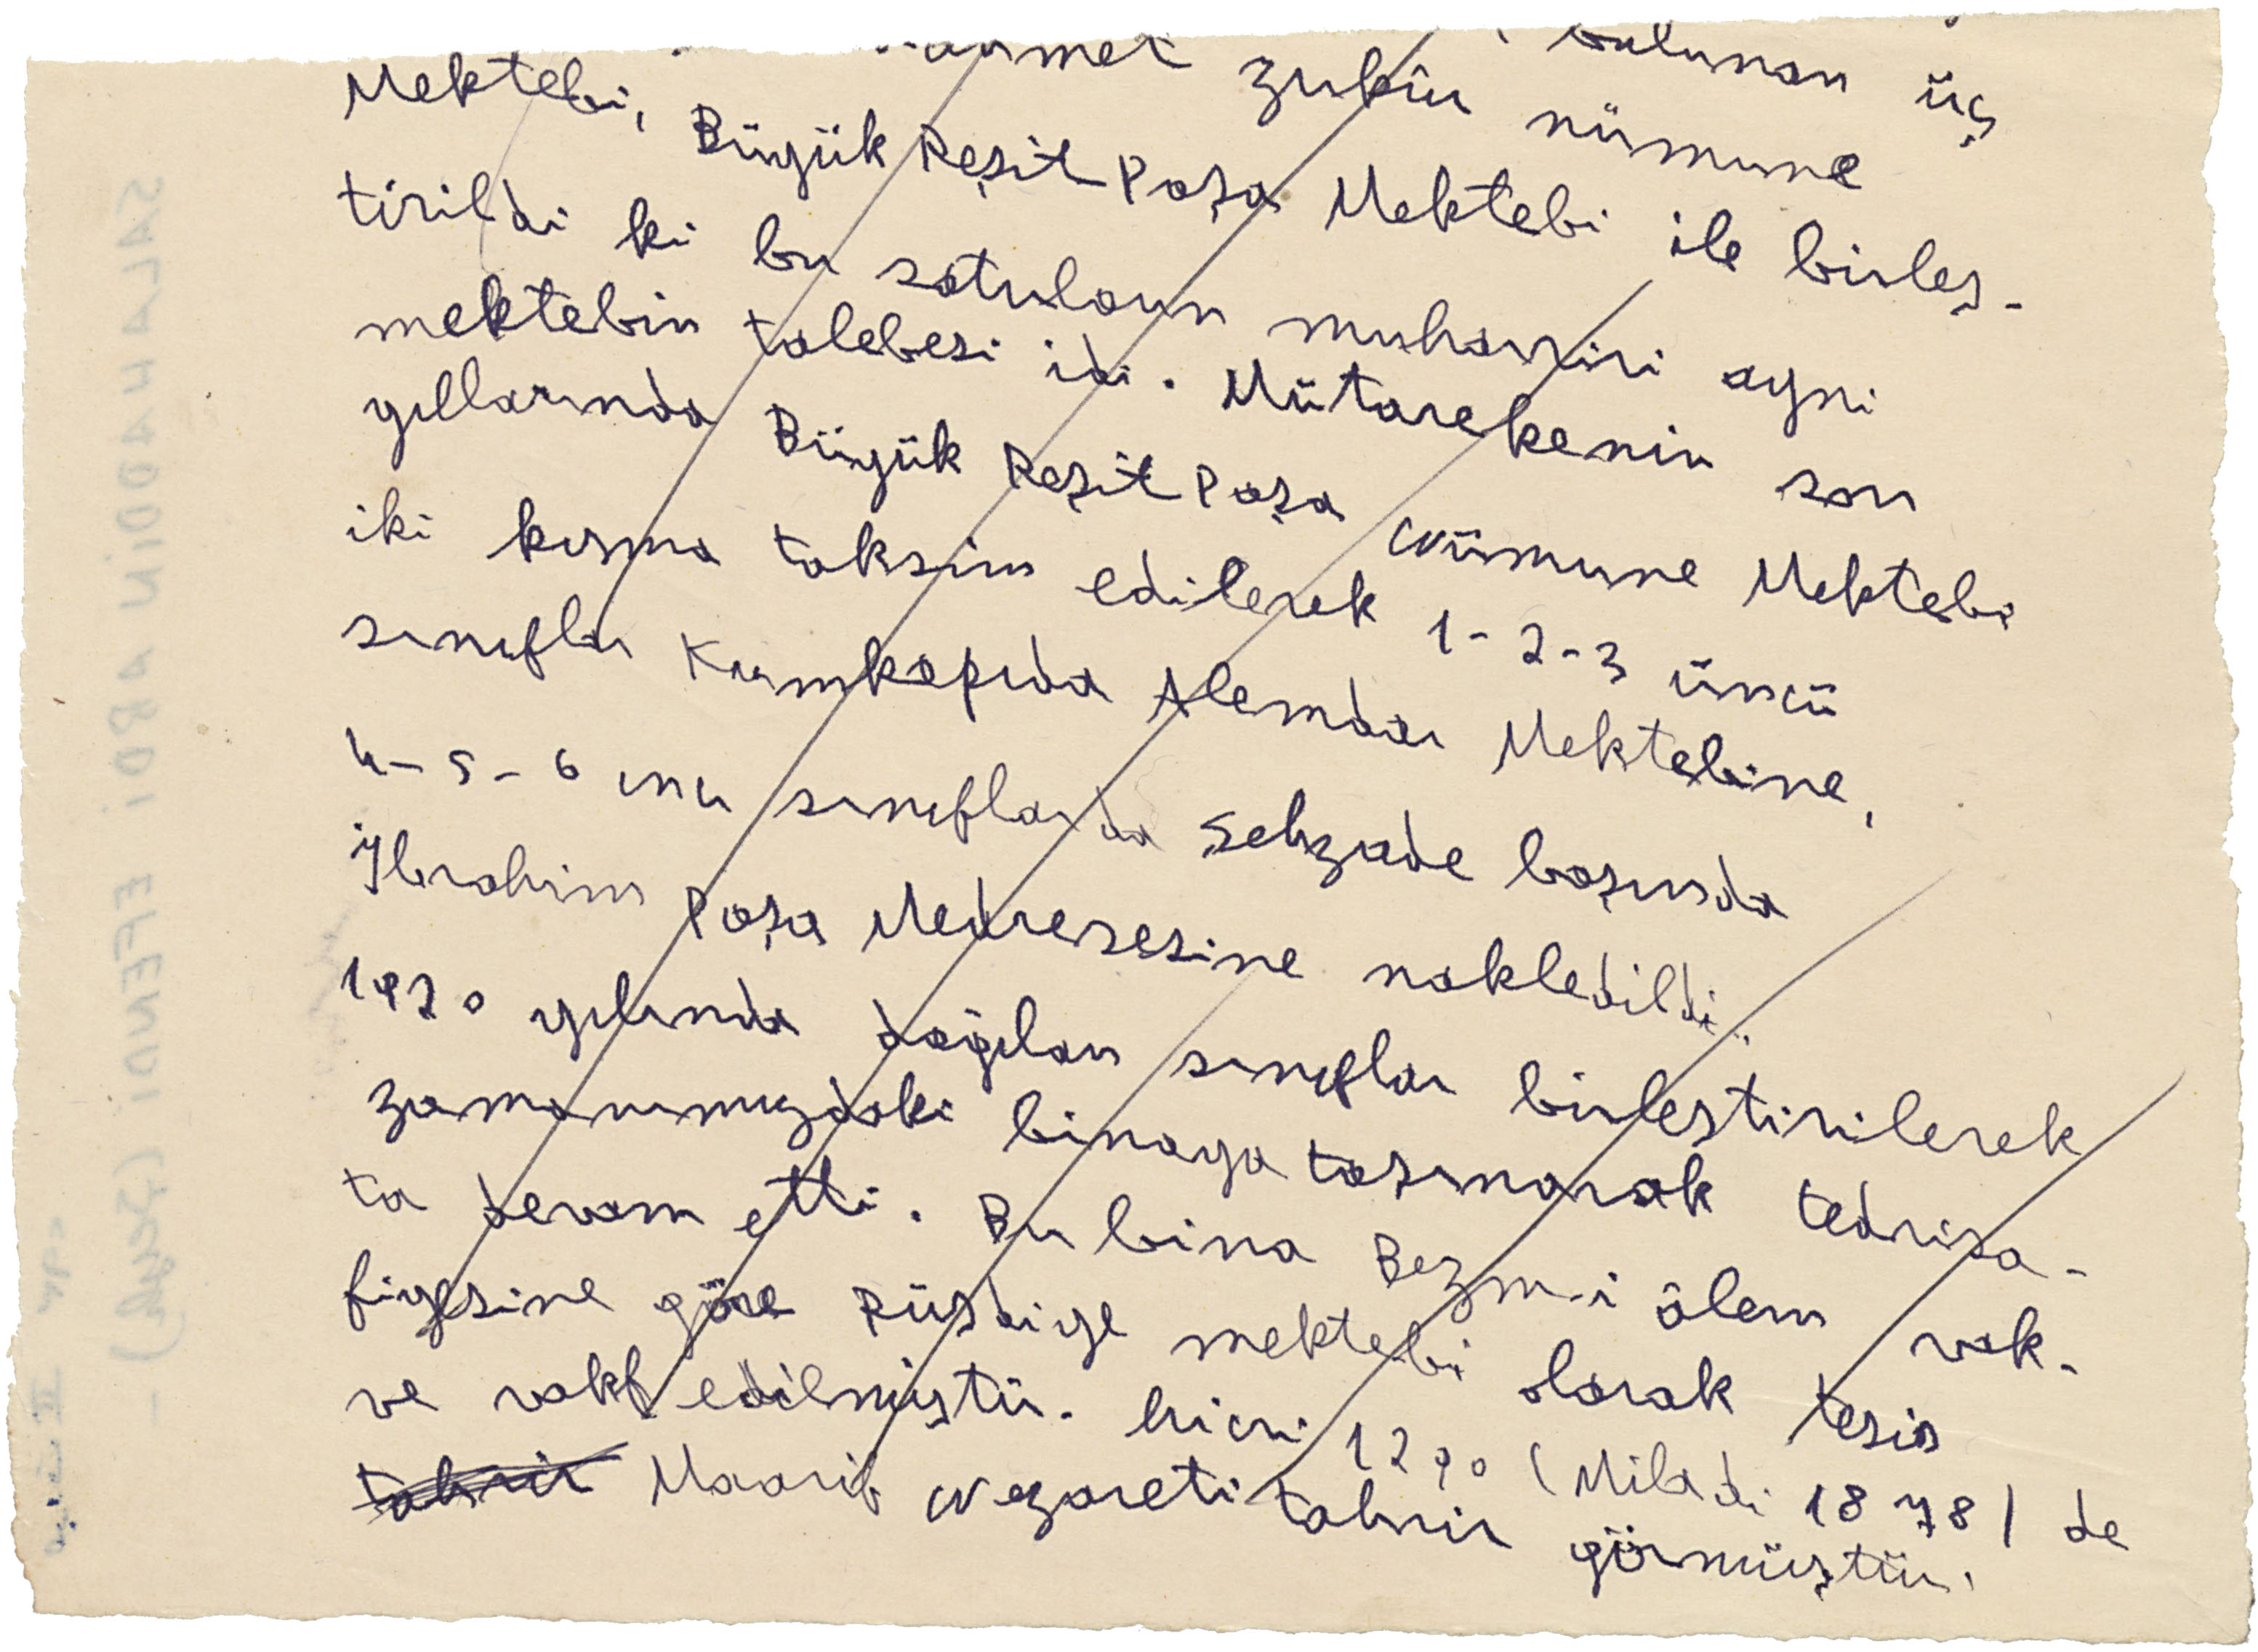 bulunan üç
zukûr nümune
Mektebi, Büyük Reşit Paşa Mektebi ile birleş-
tirildi ki bu satırların muharriri ayni
mektebin talebesi idi. Mütarekenin son
yıllarında Büyük Reşit Paşa Nümune Mektebi
iki kısma taksim edilerek 1-2-3 üncü
sınıflar Kumkapıda Alemdar Mektebine,
4-5-6 ıncı sınıflarda Şehzade başında
İbrahim Paşa Medresesine nakledildi.
1920 yılında dağılan sınıflar birleştirilerek
zamanımızdaki binaya taşınarak tedrisa-
ta devam etti. Bu bina Bezm-i âlem vak-
fiyesine göre Rüşdiye mektebi olarak tesis
ve vakf edilmiştir. hicri 1290 (Miladi 1878) de
tahrir Maarif Nezareti tahrir görmüştür.
SALAHADDİN ABDİ EFENDİ (Şeyh) -